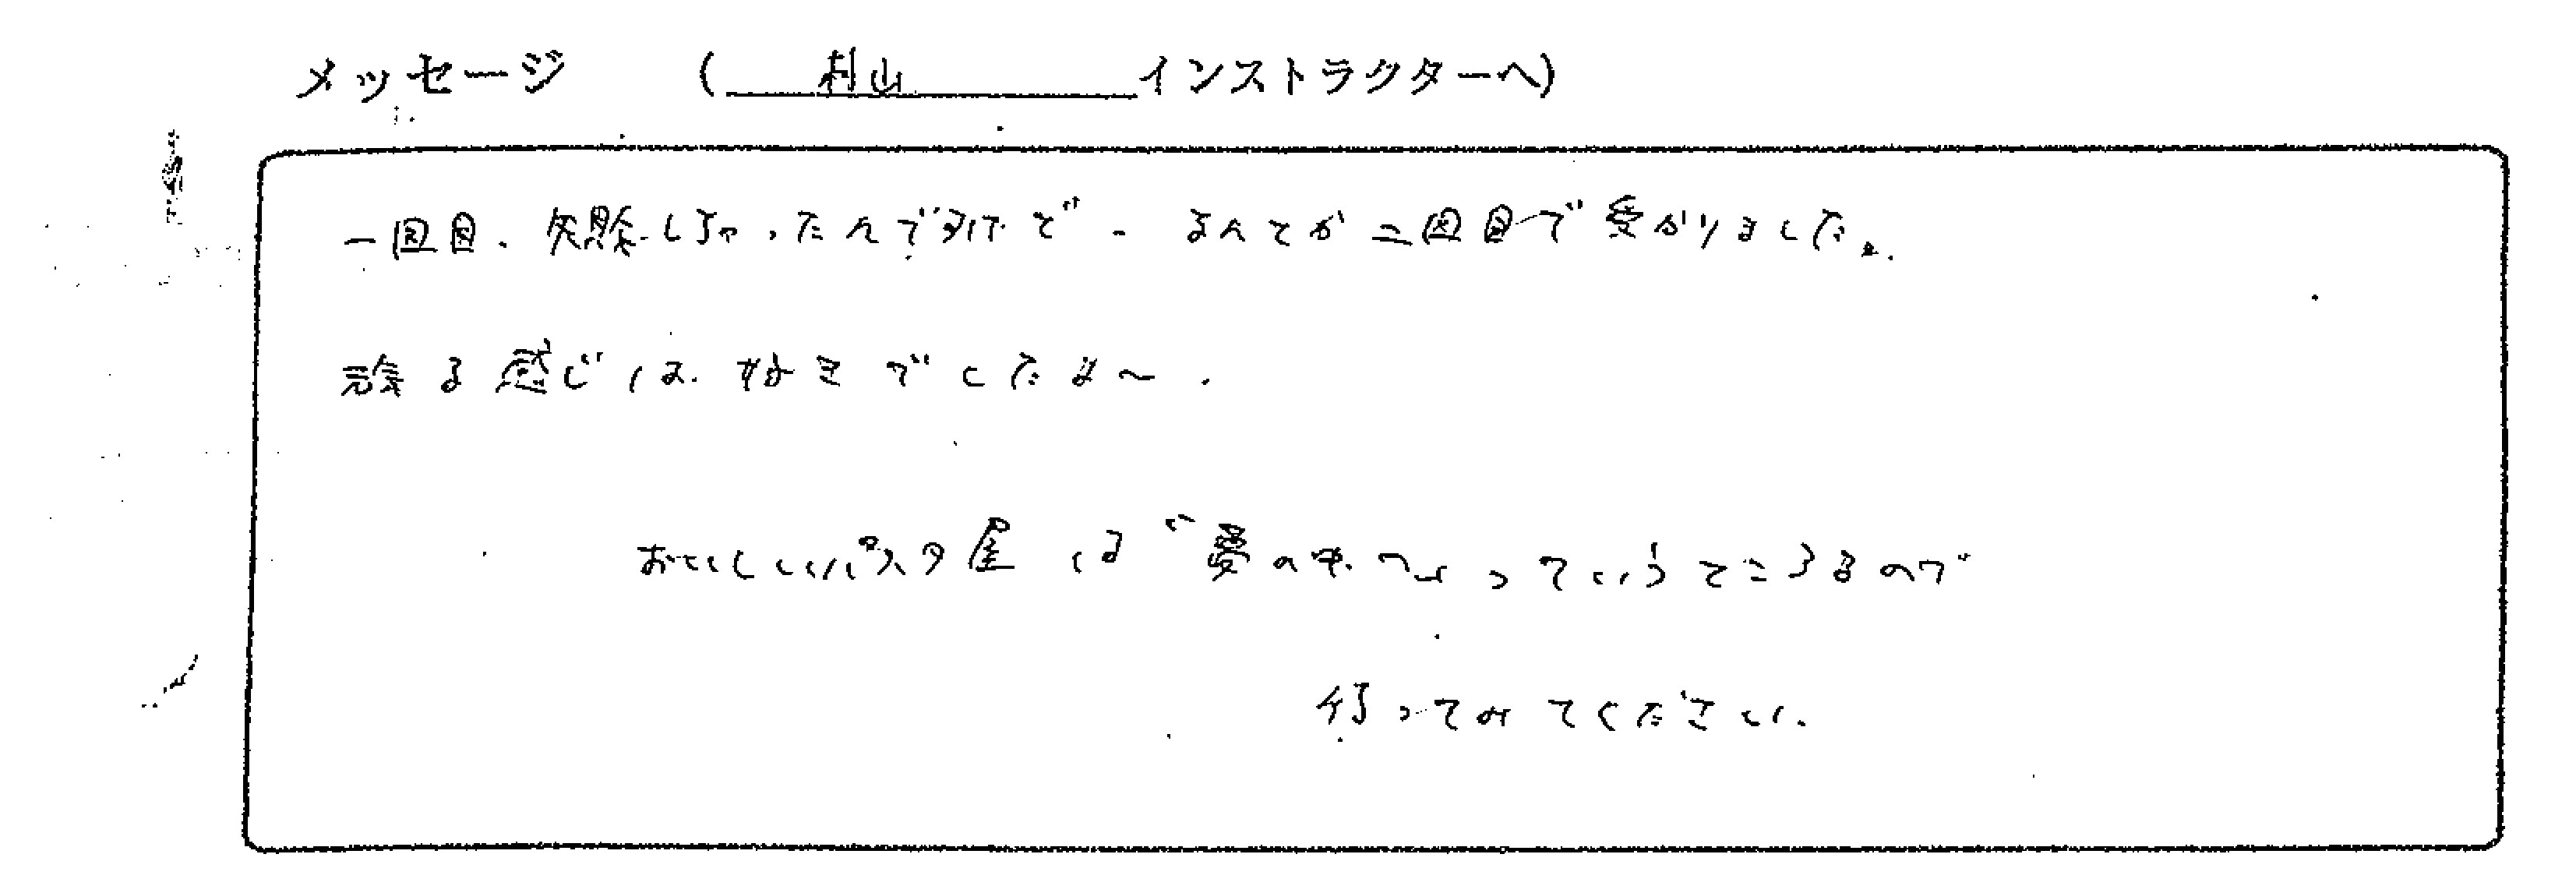 メッセージ （村山インストラクターへ）
一回目、失敗しちゃったんですけど、なんとか二回目で受かりました。
な感じは、好きでしたよ〜．
おいしいパスタ屋は"夢の中へ"っていうところなので
行ってみてください．